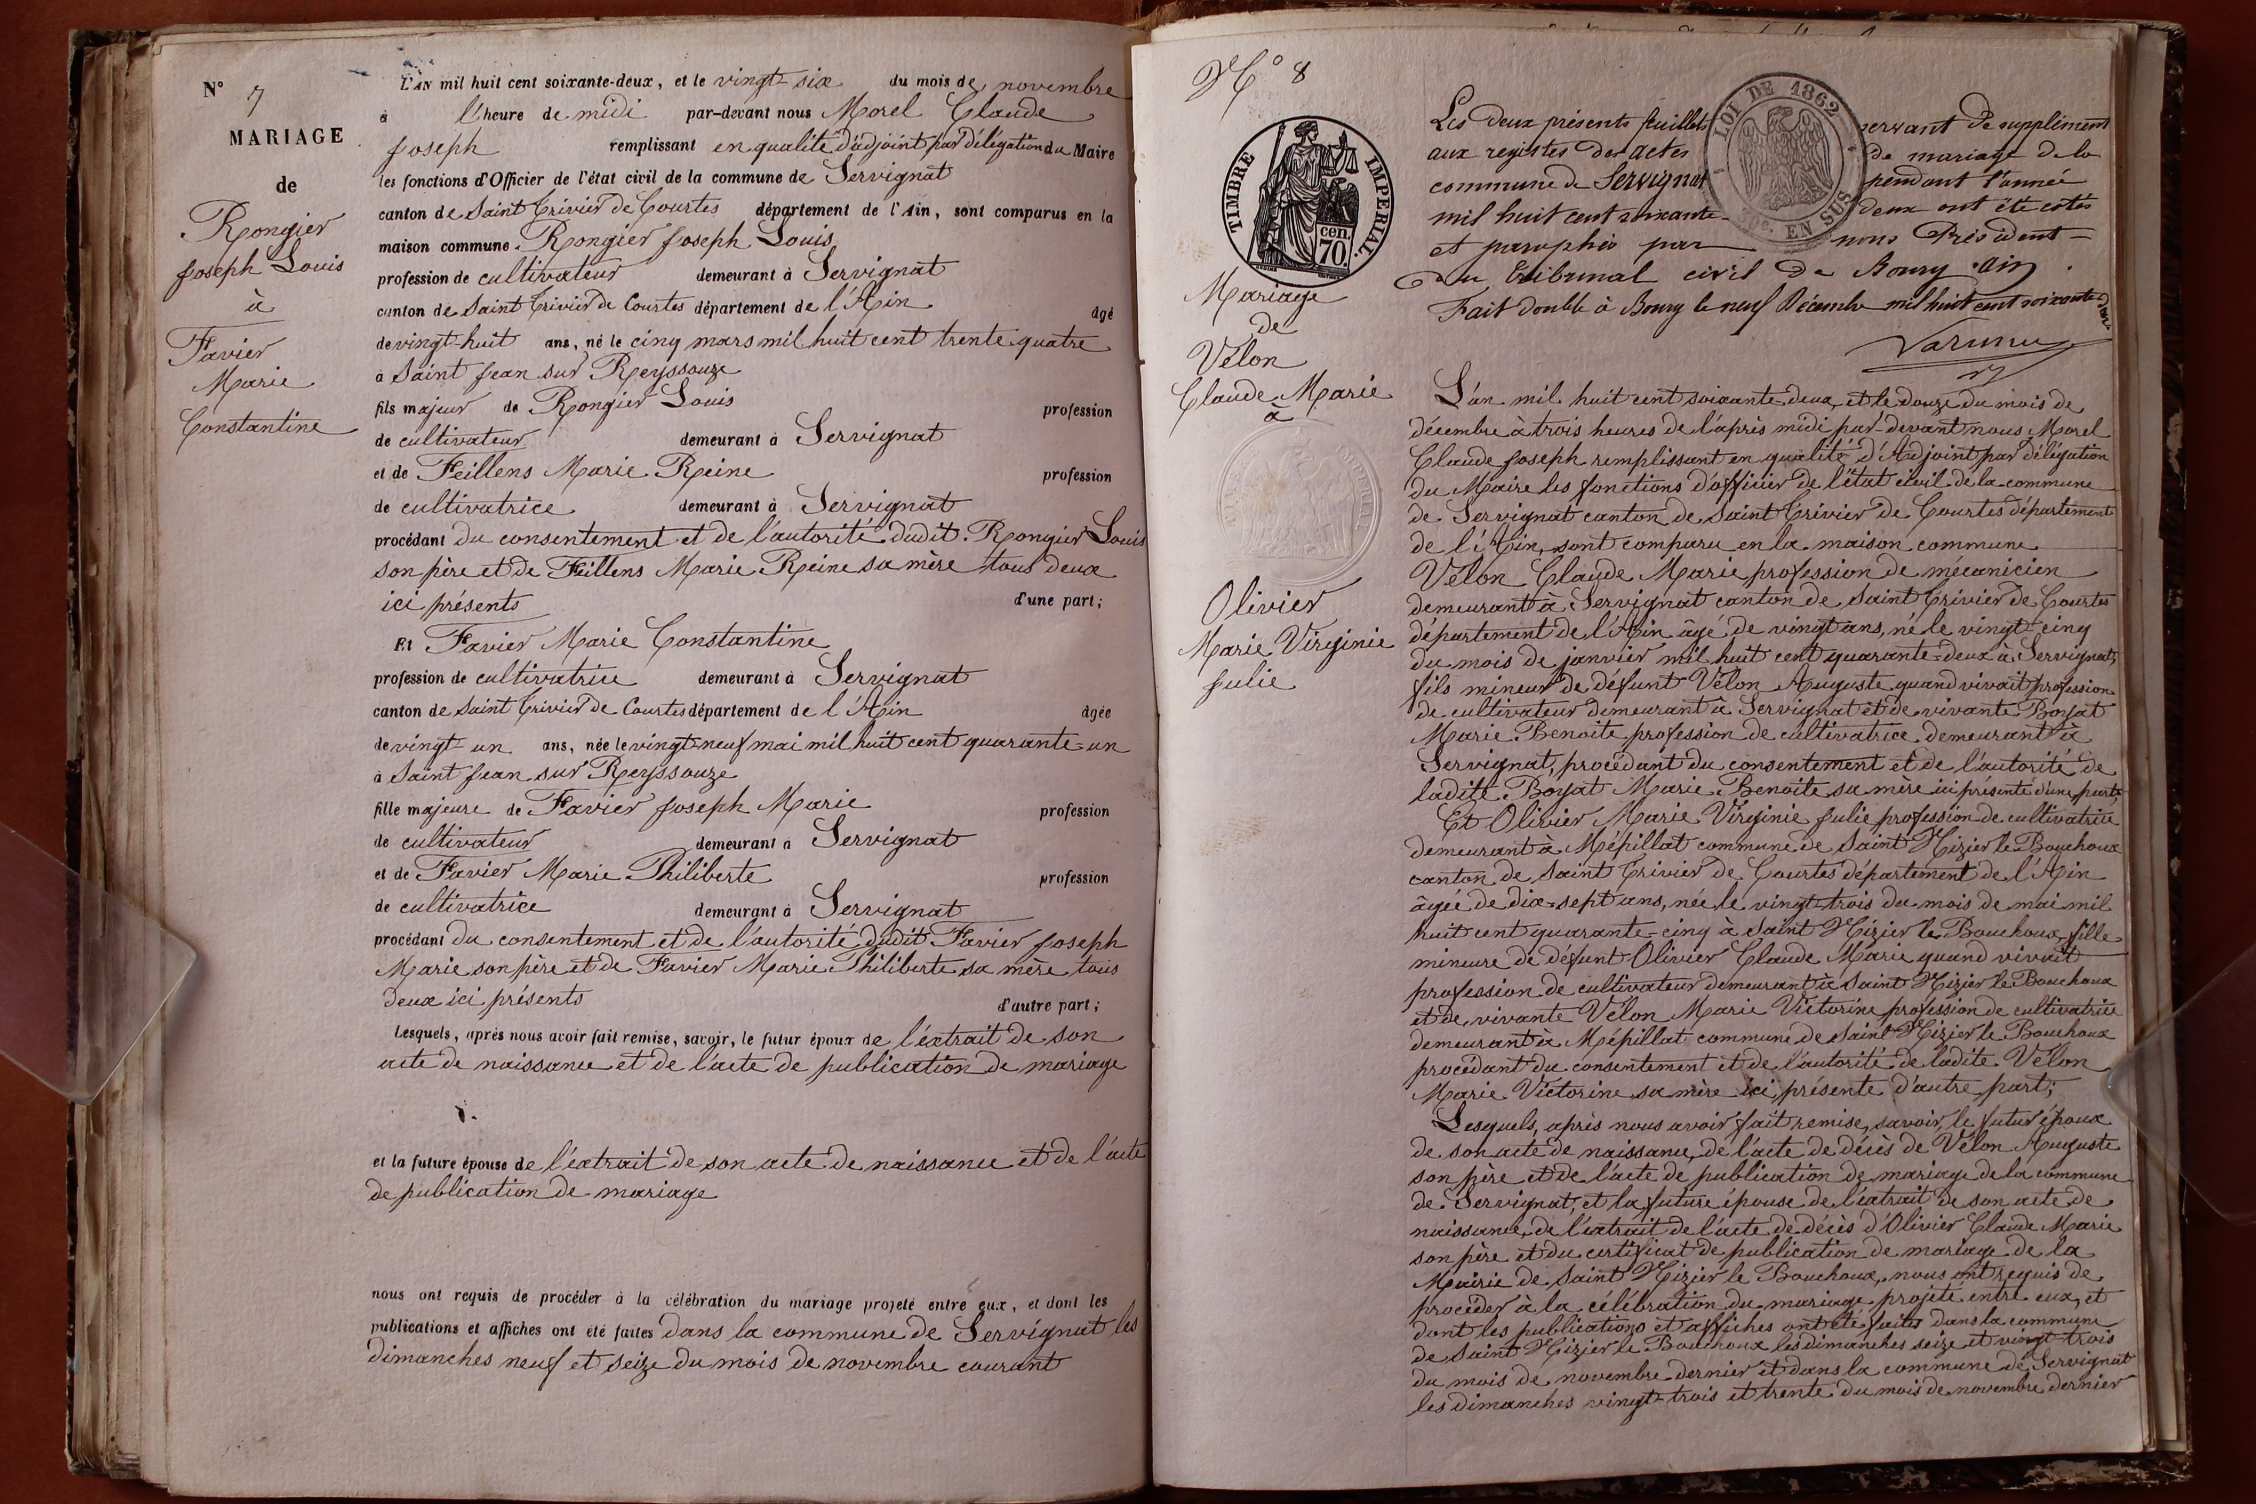 N° 7
MARIAGE
de
Rongier
Joseph Louis
à
Favier
Marie
Constantine
L'AN mil huit cent soixante-deux, et le vingt-six du mois de novembre
à l'heure de midi par-devant nous Morel Claude
Joseph remplissant en qualité d'adjoint par délégation du Maire
les fonctions d'Officier de l'état civil de la commune de Servignat
canton de Saint Trivier de Courtes département de l'Ain, sont comparus en la
maison commune Rongier Joseph Louis
profession de cultivateur demeurant à Servignat
canton de Saint Trivier de Courtes département de l'Ain âgé
de vingt-huit ans, né le cinq mars mil huit cent trente quatre
à Saint Jean sur Reyssouze
fils majeur de Rongier Louis profession
de cultivateur demeurant à Servignat
et de Feillens Marie Reine profession
de cultivatrice demeurant à Servignat
procédant du consentement et de l'autorité dudit Rongier Louis
son père et de Feillens Marie Reine sa mère tous deux
ici présents d'une part;
Et Favier Marie Constantine
profession de cultivatrice demeurant à Servignat
canton de Saint Trivier de Courtes département de l'Ain âgée
de vingt-un ans, née le vingt-neuf mai mil huit cent quarante-un
à Saint Jean sur Reyssouze
fille majeure de Favier Joseph Marie profession
de cultivateur demeurant à Servignat
et de Favier Marie Philiberte profession
de cultivatrice demeurant à Servignat
procédant du consentement et de l'autorité dudit Favier Joseph
Marie son père et de Favier Marie Philiberte sa mère tous
deux ici présents d'autre part;
Lesquels, après nous avoir fait remise, savoir, le futur époux de l'extrait de son
acte de naissance et de l'acte de publication de mariage
et la future épouse de l'extrait de son acte de naissance et de l'acte
de publication de mariage
nous ont requis de procéder à la célébration du mariage projeté entre eux, et dont les
publications et affiches ont été faites dans la commune de Servignat les
dimanches neuf et seize du mois de novembre courant
N° 8
TIMBRE IMPERIAL
70 cen.
LOI DE 1862
EN SUS
Les deux présents feuillets servant de supplément
aux registres des actes de mariage de la
commune de Servignat pendant l'année
mil huit cent soixante-deux ont été cotés
et paraphés par nous Président
du tribunal civil de Bourg Ain
Fait double à Bourg le neuf Décembre mil huit cent soixante deux
Mariage
de
Vélon
Claude Marie
à
Olivier
Marie Virginie
Julie
L'an mil huit cent soixante-deux, et le douze du mois de
décembre à trois heures de l'après midi par-devant nous Morel
Claude Joseph remplissant en qualité d'Adjoint par délégation
du Maire les fonctions d'officier de l'état civil de la commune
de Servignat canton de Saint Trivier de Courtes département
de l'Ain, sont comparu en la maison commune
Vélon Claude Marie profession de mécanicien
demeurant à Servignat canton de Saint Trivier de Courtes
département de l'Ain âgé de vingt ans, né le vingt-cinq
du mois de janvier mil huit cent quarante-deux à Servignat,
fils mineur de défunt Vélon Auguste quand vivait profession
de cultivateur demeurant à Servignat et de vivante Boyat
Marie Benoite profession de cultivatrice demeurant à
Servignat, procédant du consentement et de l'autorité de
ladite Boyat Marie Benoite sa mère ici présente d'une part,
Et Olivier Marie Virginie Julie profession de cultivatrice
demeurant à Mépillat commune de Saint Nizier le Bouchoux
canton de Saint Trivier de Courtes département de l'Ain
âgée de dix-sept ans, née le vingt-trois du mois de mai mil
huit cent quarante-cinq à Saint Nizier le Bouchoux, fille
mineure de défunt Olivier Claude Marie quand vivait
profession de cultivateur demeurant à Saint Nizier le Bouchoux
et de vivante Vélon Marie Victorine profession de cultivatrice
demeurant à Mépillat commune de Saint Nizier le Bouchoux
procédant du consentement et de l'autorité de ladite Vélon
Marie Victorine sa mère ici présente d'autre part;
Lesquels, après nous avoir fait remise, savoir, le futur époux
de son acte de naissance, de l'acte de décès de Vélon Auguste
son père et de l'acte de publication de mariage de la commune
de Servignat, et la future épouse de l'extrait de son acte de
naissance, de l'extrait de l'acte de décès d'Olivier Claude Marie
son père et du certificat de publication de mariage de la
Mairie de Saint Nizier le Bouchoux, nous ont requis de
procéder à la célébration du mariage projeté entre eux, et
dont les publications et affiches ont été faites dans la commune
de Saint Nizier le Bouchoux les dimanches seize et vingt-trois
du mois de novembre dernier et dans la commune de Servignat
les dimanches vingt-trois et trente du mois de novembre dernier